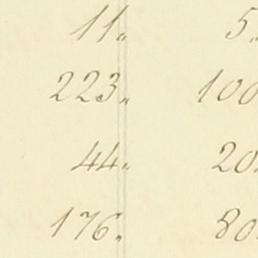 11„ 5.
223„ 100
44„ 20.
176„ 80.